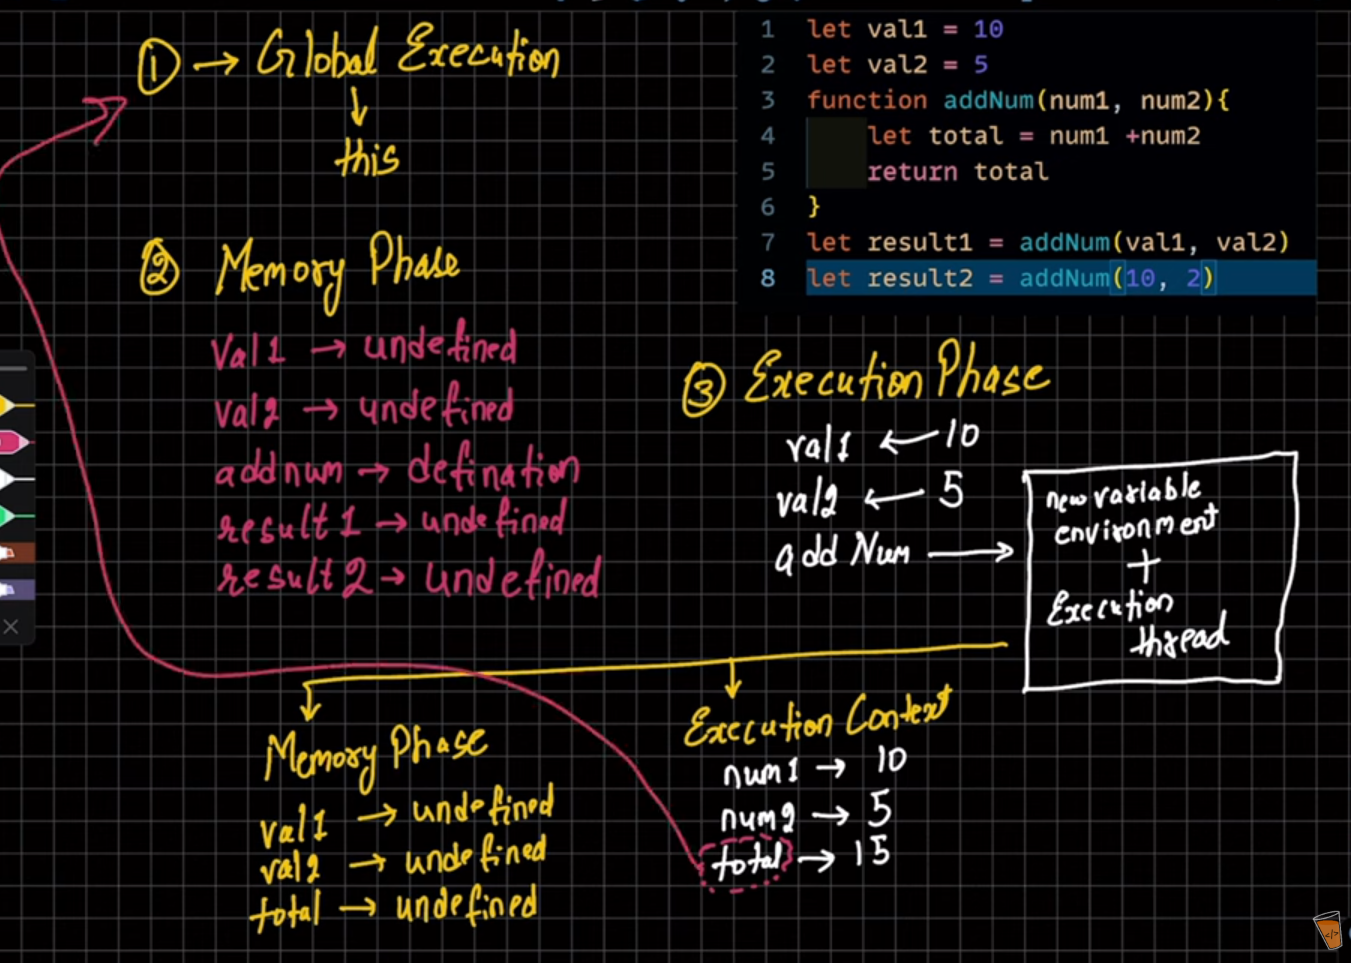 ① → Global Execution
this
② Memory Phase
Val1 → undefined
val2 → undefined
addnum → defination
result1 → undefined
result2 → undefined
1 let val1 = 10
2 let val2 = 5
3 function addNum(num1, num2){
4 let total = num1 +num2
5 return total
6 }
7 let result1 = addNum(val1, val2)
8 let result2 = addNum(10, 2)
③ Execution Phase
val1 ← 10
val2 ← 5
add Num →
new variable
environment
+
Execution
thread
Memory Phase
val1 → undefined
val2 → undefined
total → undefined
Execution Context
num1 → 10
num2 → 5
total → 15